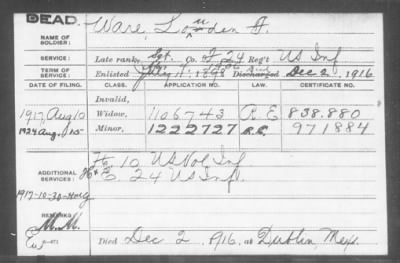 DEAD.
NAME OF SOLDIER: Ware, Louden A.
SERVICE: Late rank, Sgt. Co. F, 24 Reg't US Inf
TERM OF SERVICE: Enlisted July 11, 1898 Discharged Dec 2, 1916
DATE OF FILING. CLASS. APPLICATION NO. LAW. CERTIFICATE NO.
Invalid,
1917, Aug 10 Widow, 1106743 R.E 838.880
1924 Aug. 15 Minor, 1222727 R.E. 971884
ADDITIONAL SERVICES: 10 US Vol Inf
E 24 US Inf.
1917-10-30
REMARKS:
Died Dec 2, 1916, at Dublin, Mex.